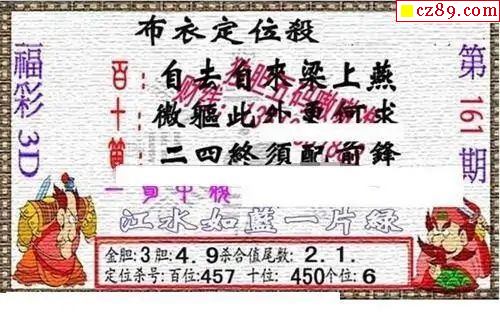 cz89.com
布衣定位殺
福彩3D
第161期
百: 自去自來梁上燕
十: 微軀此外更何求
二四終須配前鋒
江水如藍一片綠
金胆:3胆:4.9杀合值尾数:2.1.
定位杀号:百位:457 十位:450个位:6